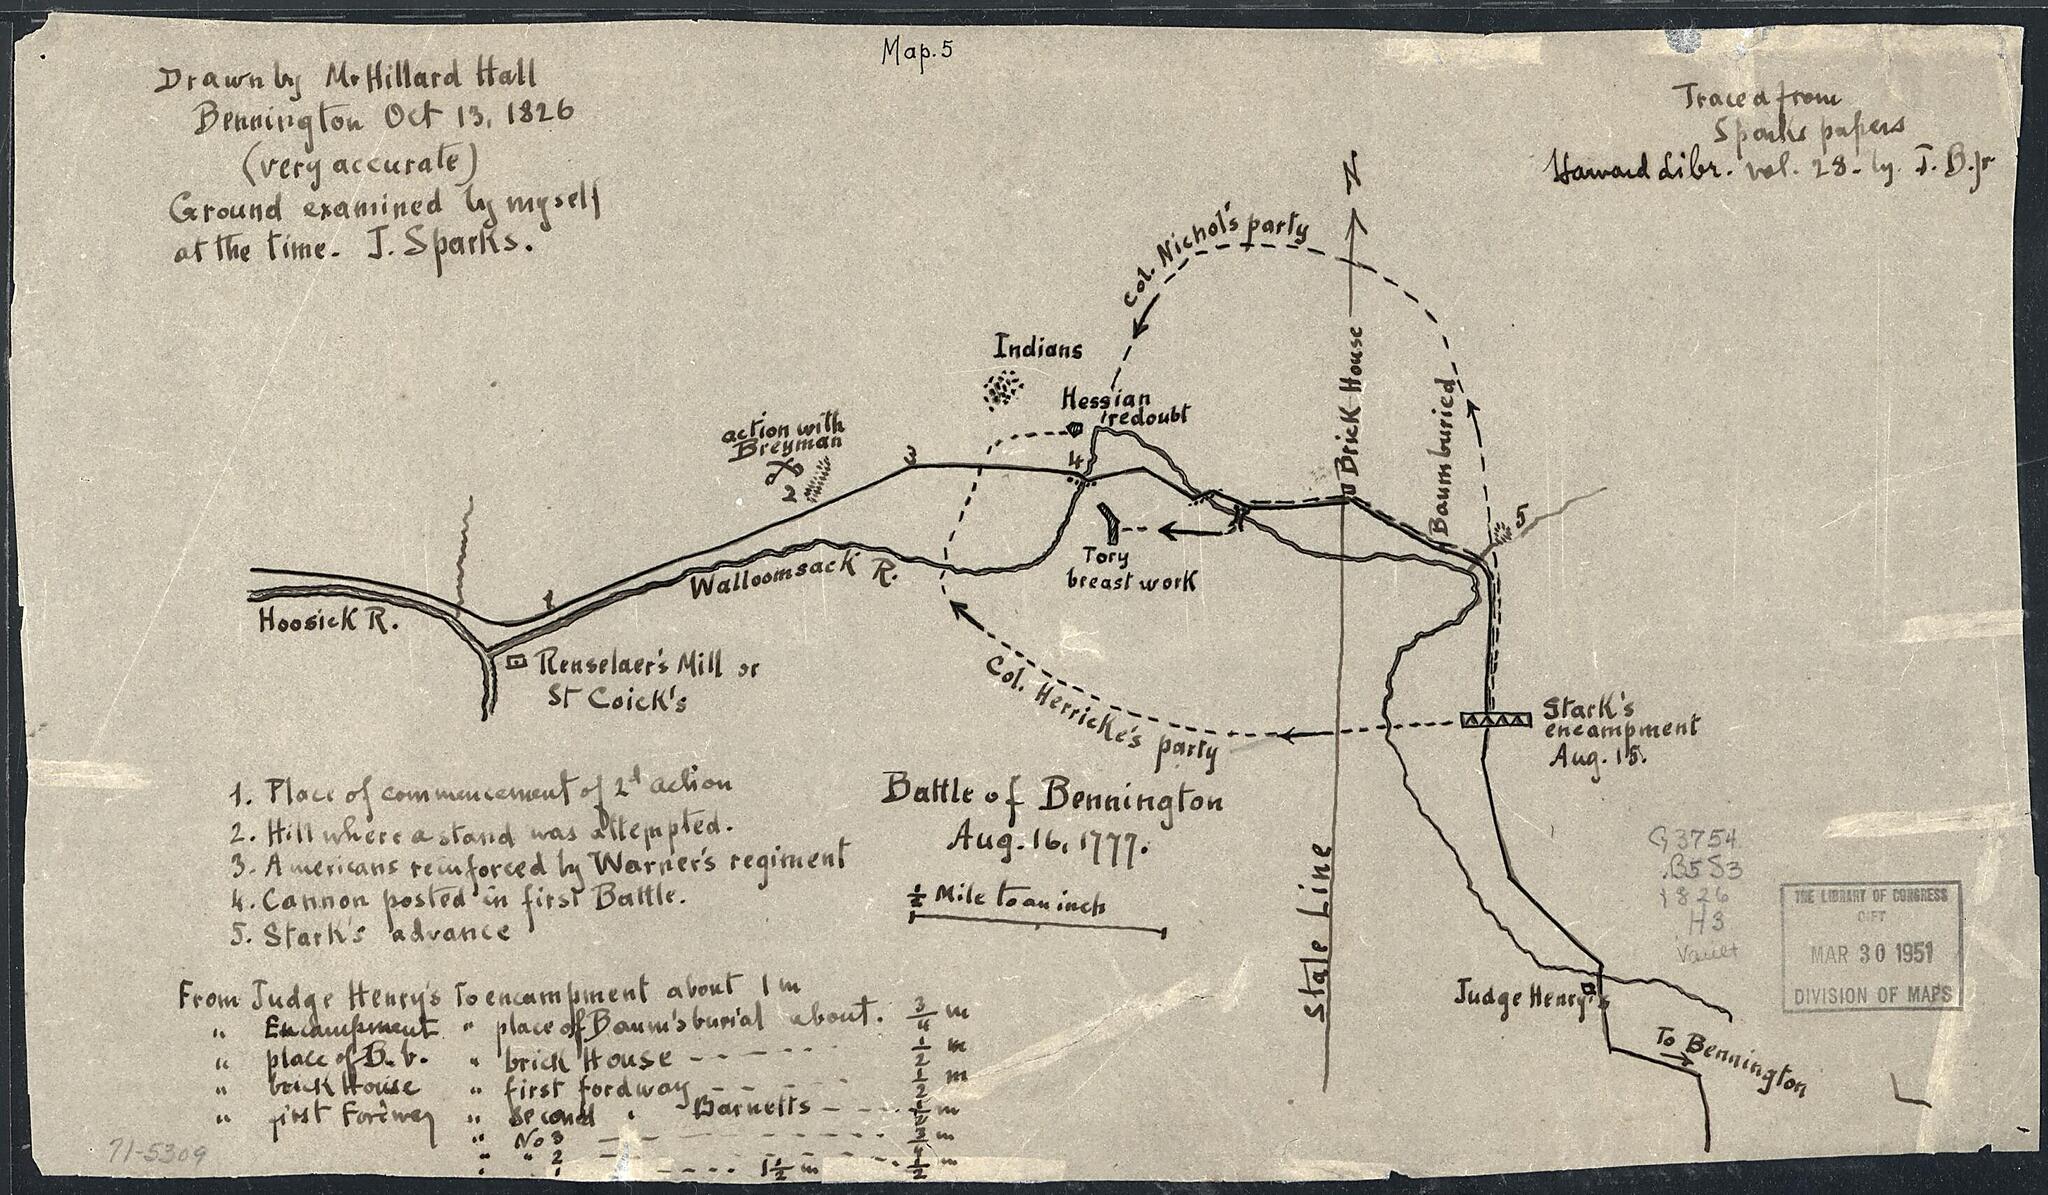 Map. 5
Drawn by Mr Hillard Hall
Bennington Oct 13, 1826
(very accurate)
Ground examined by myself
at the time. J. Sparks.
Traced from
Sparks papers
Harvard Libr. vol. 28. by. J. B. Jr
N
Col. Nichol's party
Indians
Hessian
redoubt
action with
Breyman
2
3
4
Brick House
Baum buried
5
Tory
breast work
Walloomsack R.
1
Hoosick R.
Renselaer's Mill or
St Coick's
Col. Herricke's party
Stark's
encampment
Aug. 15.
State Line
Battle of Bennington
Aug. 16, 1777.
½ Mile to an inch
1. Place of commencement of 2d action
2. Hill where a stand was attempted.
3. Americans reinforced by Warner's regiment
4. Cannon posted in first Battle.
5. Stark's advance
From Judge Henry's to encampment about 1 m
" Encampment " place of Baum's burial about. ¾ m
" place of B. b. " brick House ½ m
" brick House " first fordway ½ m
" first Fordway " second " Barnetts m
" No 3 m
" " 2 m
" 1 1½ m ½ m
Judge Henry's
To Bennington
G3754
.B5S3
1826
.H3
Vault
THE LIBRARY OF CONGRESS
GIFT
MAR 30 1951
DIVISION OF MAPS
71-5309